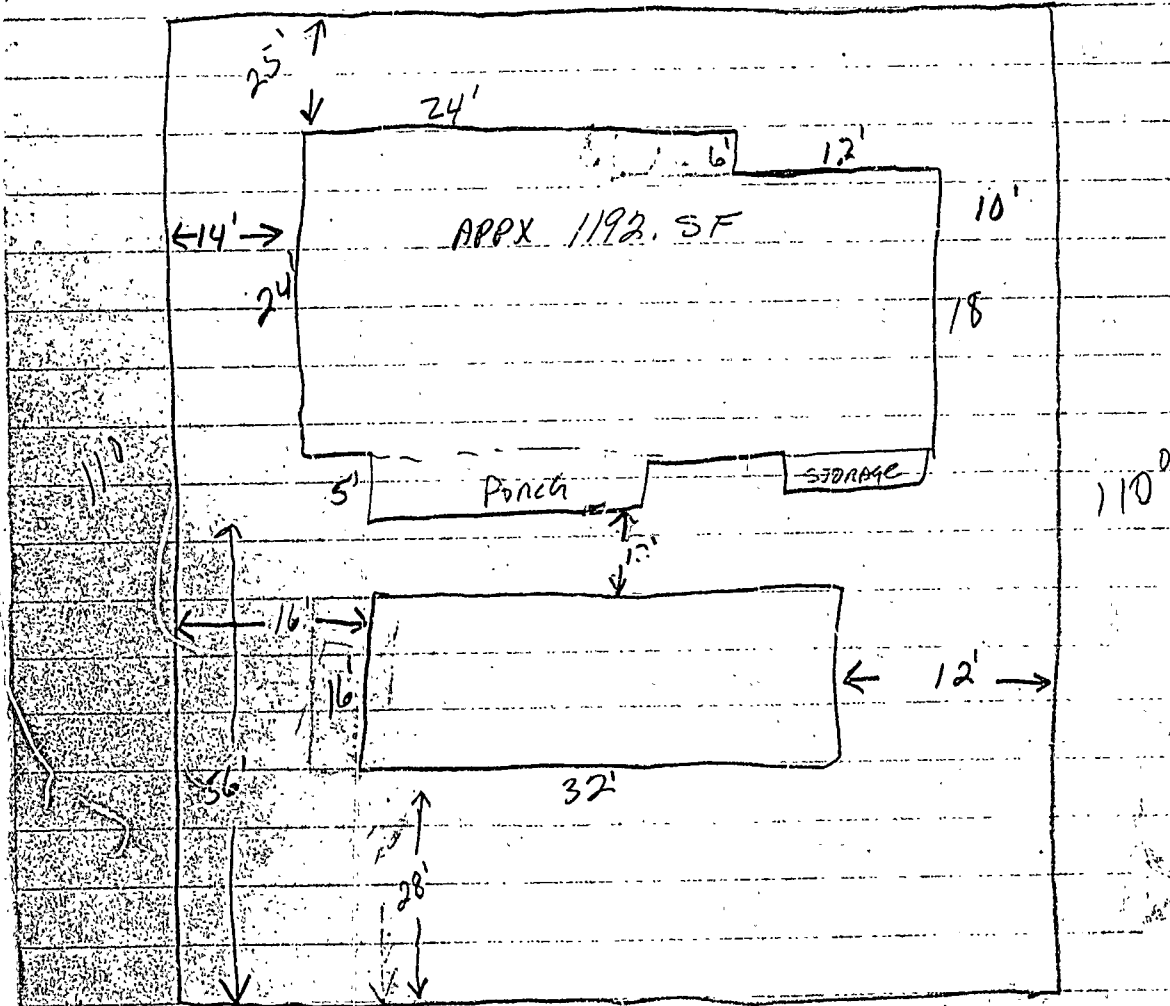 25'
24'
6'
12'
10'
14'
APPX 1192. SF
24'
18
110
5'
PORCH
STORAGE
110
16'
16'
12'
56'
32'
28'